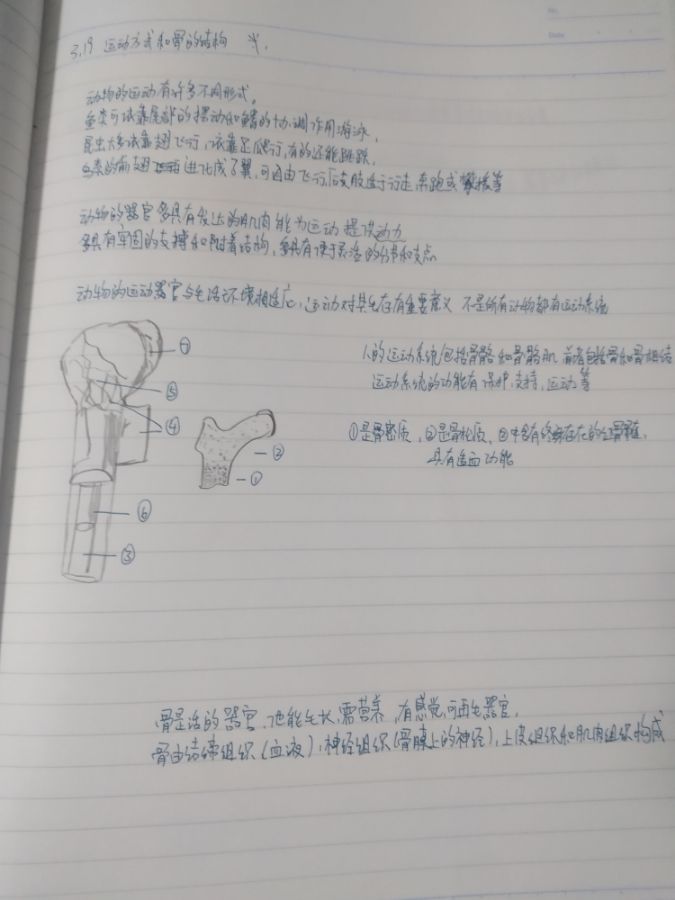 No.
Date
3.19 运动方式和骨的结构
动物的运动有许多不同形式。
鱼类可依靠尾部的摆动和鳍的协调作用游泳,
昆虫大多依靠翅飞行,依靠足爬行,有的还能跳跃,
鸟类的前翅进化成了翼,可自由飞行,后肢适于行走、奔跑或攀援等
动物的器官多具有发达的肌肉能为运动提供动力
多具有牢固的支撑和附着结构,多具有便于灵活的和支点
动物的运动器官与生活环境相适应,运动对其生存有重要意义 不是所有动物都有运动系统
⑦
人的运动系统包括骨骼和骨骼肌 前者包括骨和骨相结
⑤
运动系统的功能有保护、支持、运动等
④
①是骨密质,②是骨松质,②中含有终存在的红骨髓,
②
具有造血功能
①
⑥
③
骨是活的器官、也能生长、需营养、有感觉、可再生器官,
骨由结缔组织(血液),神经组织(骨膜上的神经),上皮组织和肌肉组织构成